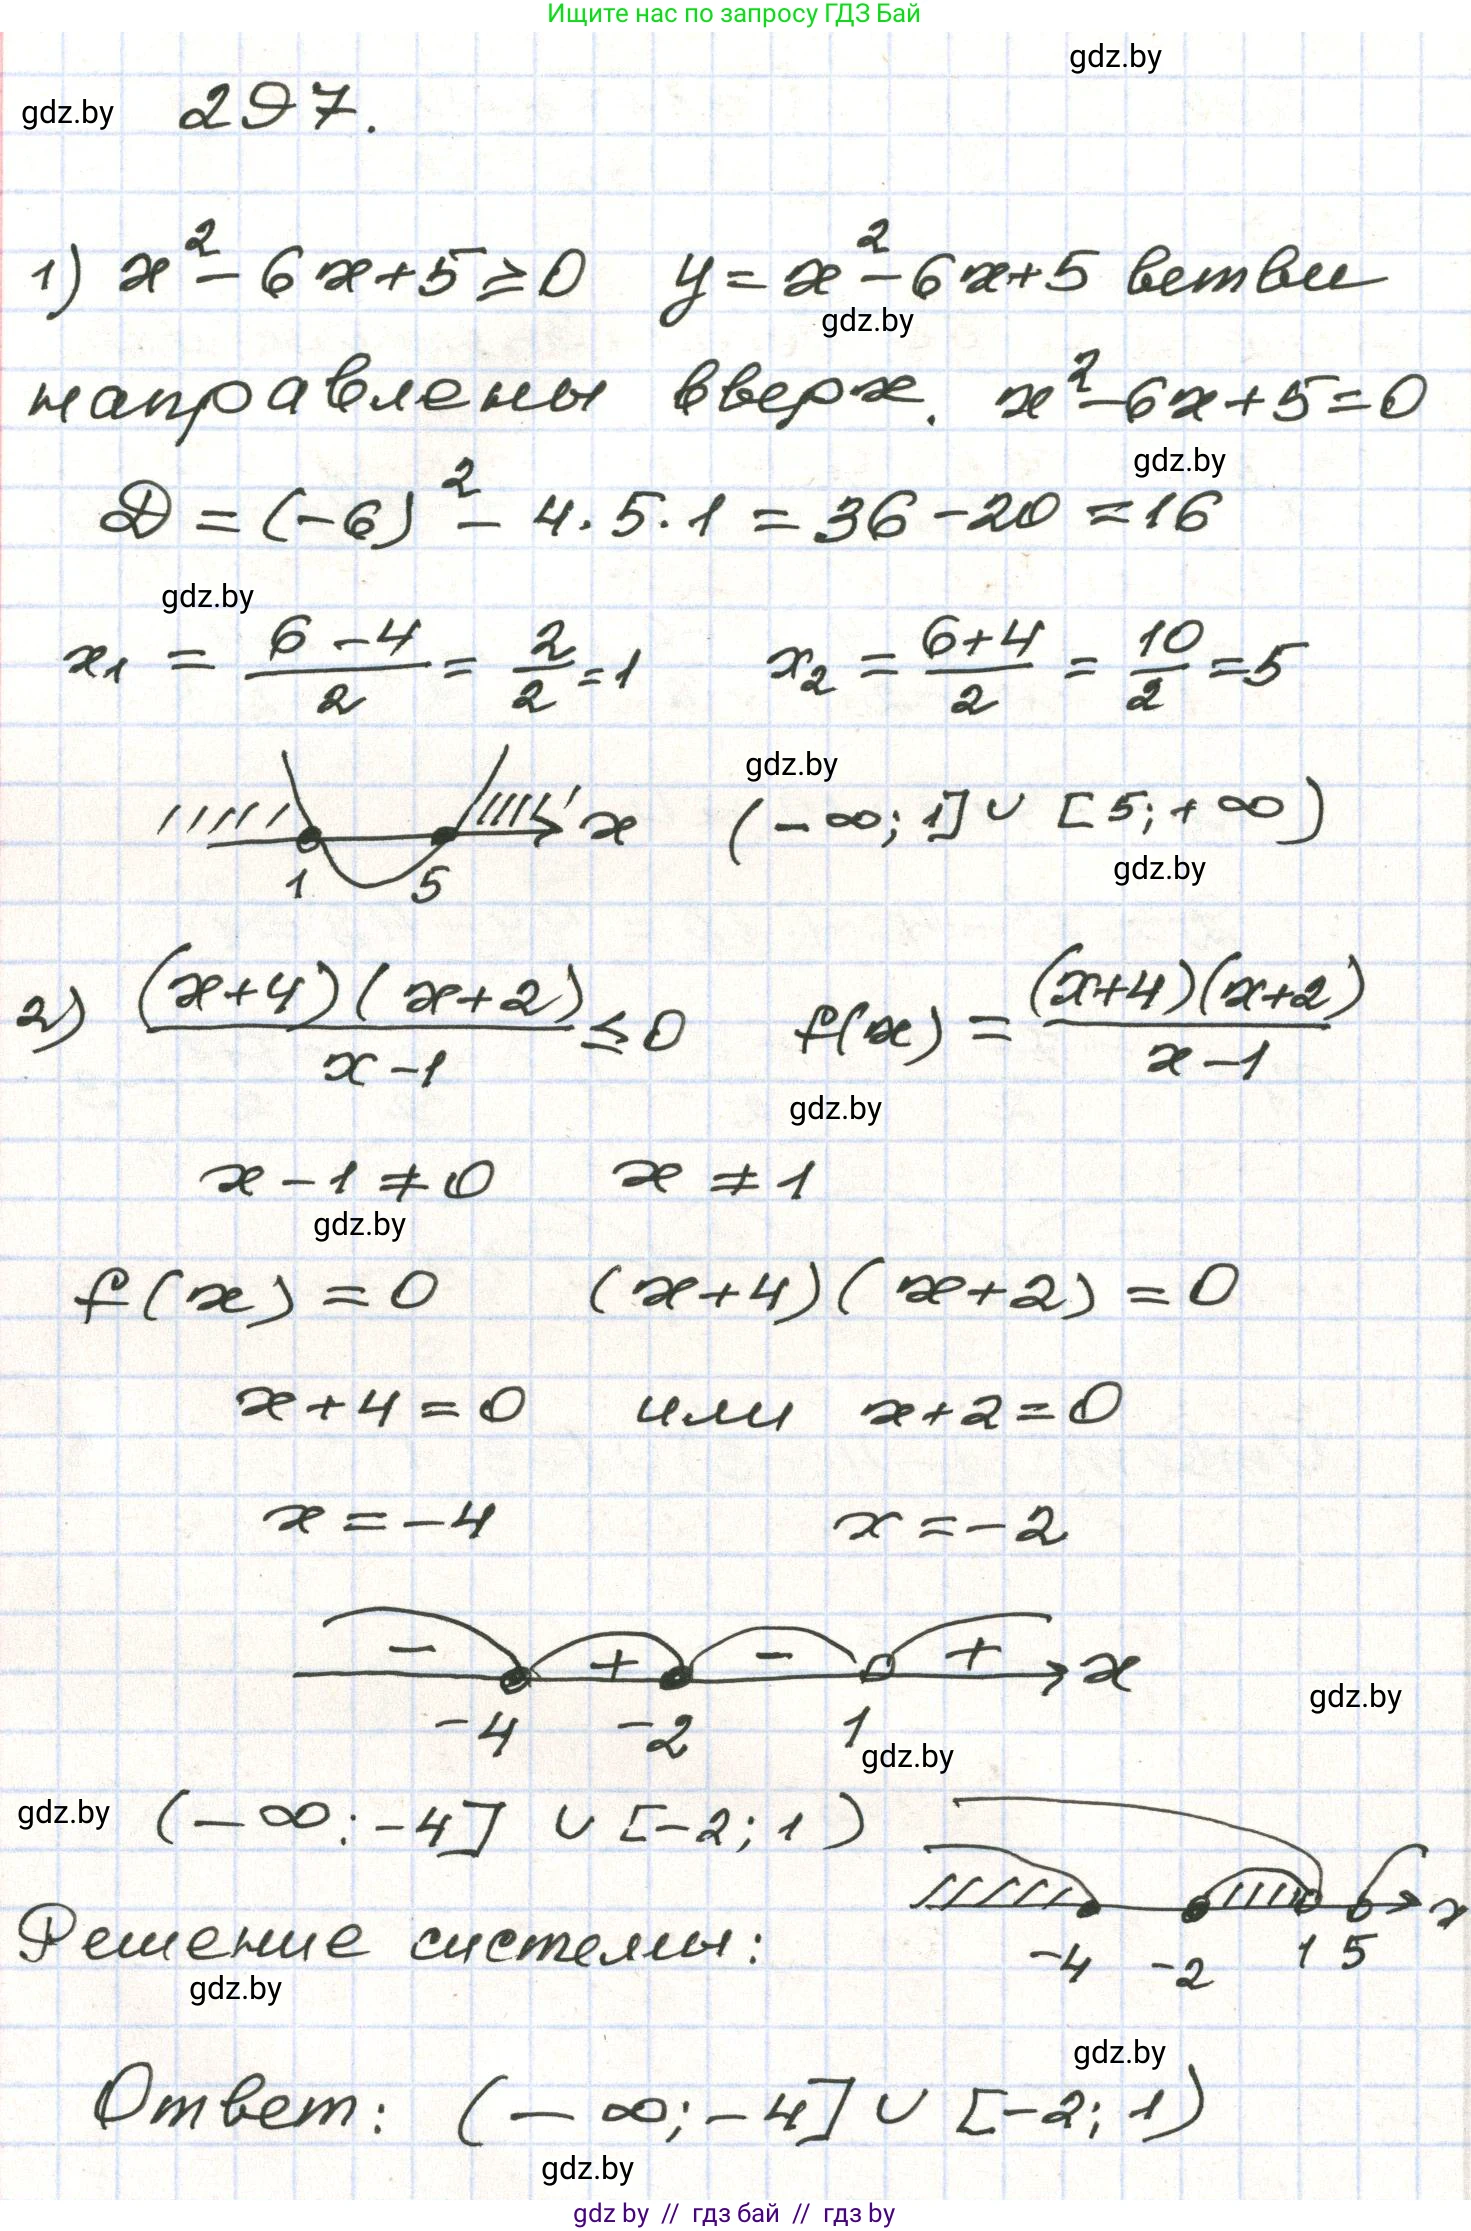 Ищите нас по запросу ГДЗ Бай
gdz.by
gdz.by 297.
1) x² - 6x + 5 ≥ 0 y = x² - 6x + 5 ветви
gdz.by
направлены вверх. x² - 6x + 5 = 0
gdz.by
D = (-6)² - 4 · 5 · 1 = 36 - 20 = 16
gdz.by
x₁ = (6 - 4)/2 = 2/2 = 1 x₂ = (6 + 4)/2 = 10/2 = 5
gdz.by
x (-∞; 1] ∪ [5; +∞)
1 5
gdz.by
2) (x+4)(x+2)/(x-1) ≤ 0 f(x) = (x+4)(x+2)/(x-1)
gdz.by
x - 1 ≠ 0 x ≠ 1
gdz.by
f(x) = 0 (x+4)(x+2) = 0
x + 4 = 0 или x + 2 = 0
x = -4 x = -2
- + - + x
-4 -2 1
gdz.by
gdz.by
gdz.by (-∞; -4] ∪ [-2; 1)
x
Решение системы: -4 -2 1 5
gdz.by
gdz.by
Ответ: (-∞; -4] ∪ [-2; 1)
gdz.by
gdz by // гдз бай // гдз by